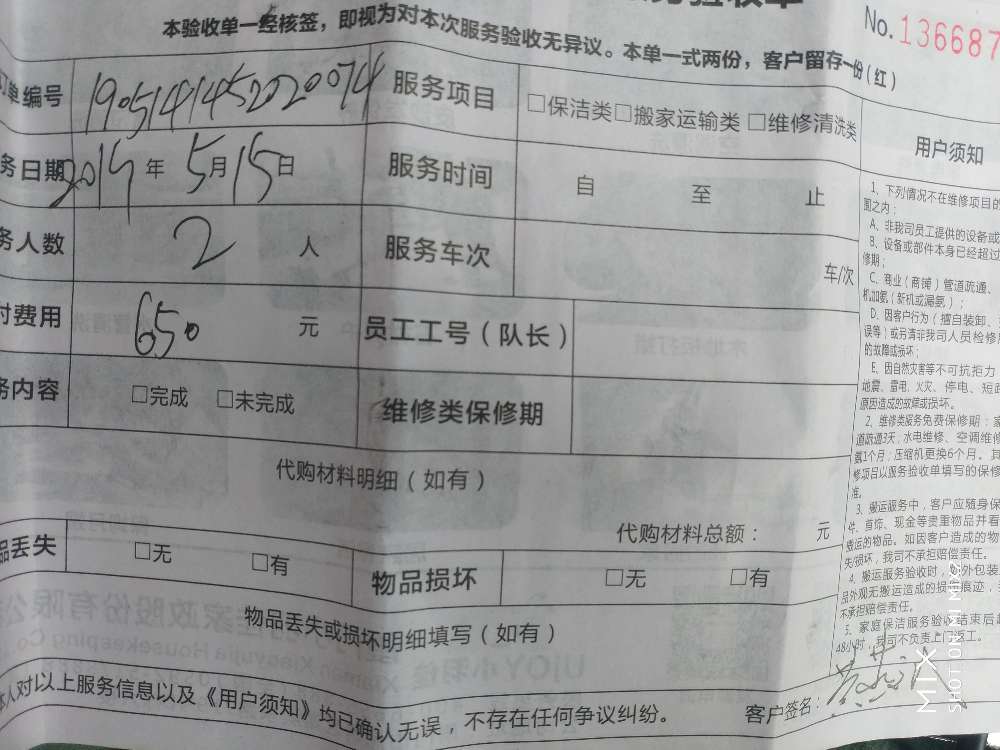 验收单
No.136687
本验收单一经核签，即视为对本次服务验收无异议。本单一式两份，客户留存一份(红)
单编号 1905141452020074 服务项目 □保洁类□搬家运输类 □维修清洗类
务日期 年 5月15日 服务时间 自 至 止
务人数 2 人 服务车次 车/次
付费用 650 元 员工工号（队长）
务内容 □完成 □未完成 维修类保修期
代购材料明细（如有）
代购材料总额： 元
品丢失 □无 □有 物品损坏 □无 □有
物品丢失或损坏明细填写（如有）
本人对以上服务信息以及《用户须知》均已确认无误，不存在任何争议纠纷。 客户签名：
用户须知
1、下列情况不在维修项目的
围之内：
A、非我司员工提供的设备或
B、设备或部件本身已经超过
修期；
C、商业（商铺）管道疏通、
机加氨（新机或漏氨）；
D、因客户行为（擅自装卸、
误等）或另请非我司人员检修
的故障或损坏；
E、因自然灾害等不可抗拒力
地震、雷电、火灾、停电、短
原因造成的故障或损坏。
2、维修类服务免费保修期：
道疏通3天，水电维修、空调维修
氨1个月；压缩机更换6个月。其
修项目以服务验收单填写的保修
准。
3、搬运服务中，客户应随身保
件、首饰、现金等贵重物品并看
搬运的物品。如因客户造成的物
失/损坏，我司不承担赔偿责任。
4、搬运服务验收时，外包装
品外观无搬运造成的损 痕迹，
不承担赔偿责任。
5、家庭保洁服务验收结束后
48小时，我司不负责上门返工。
SHOT ON MI MIX